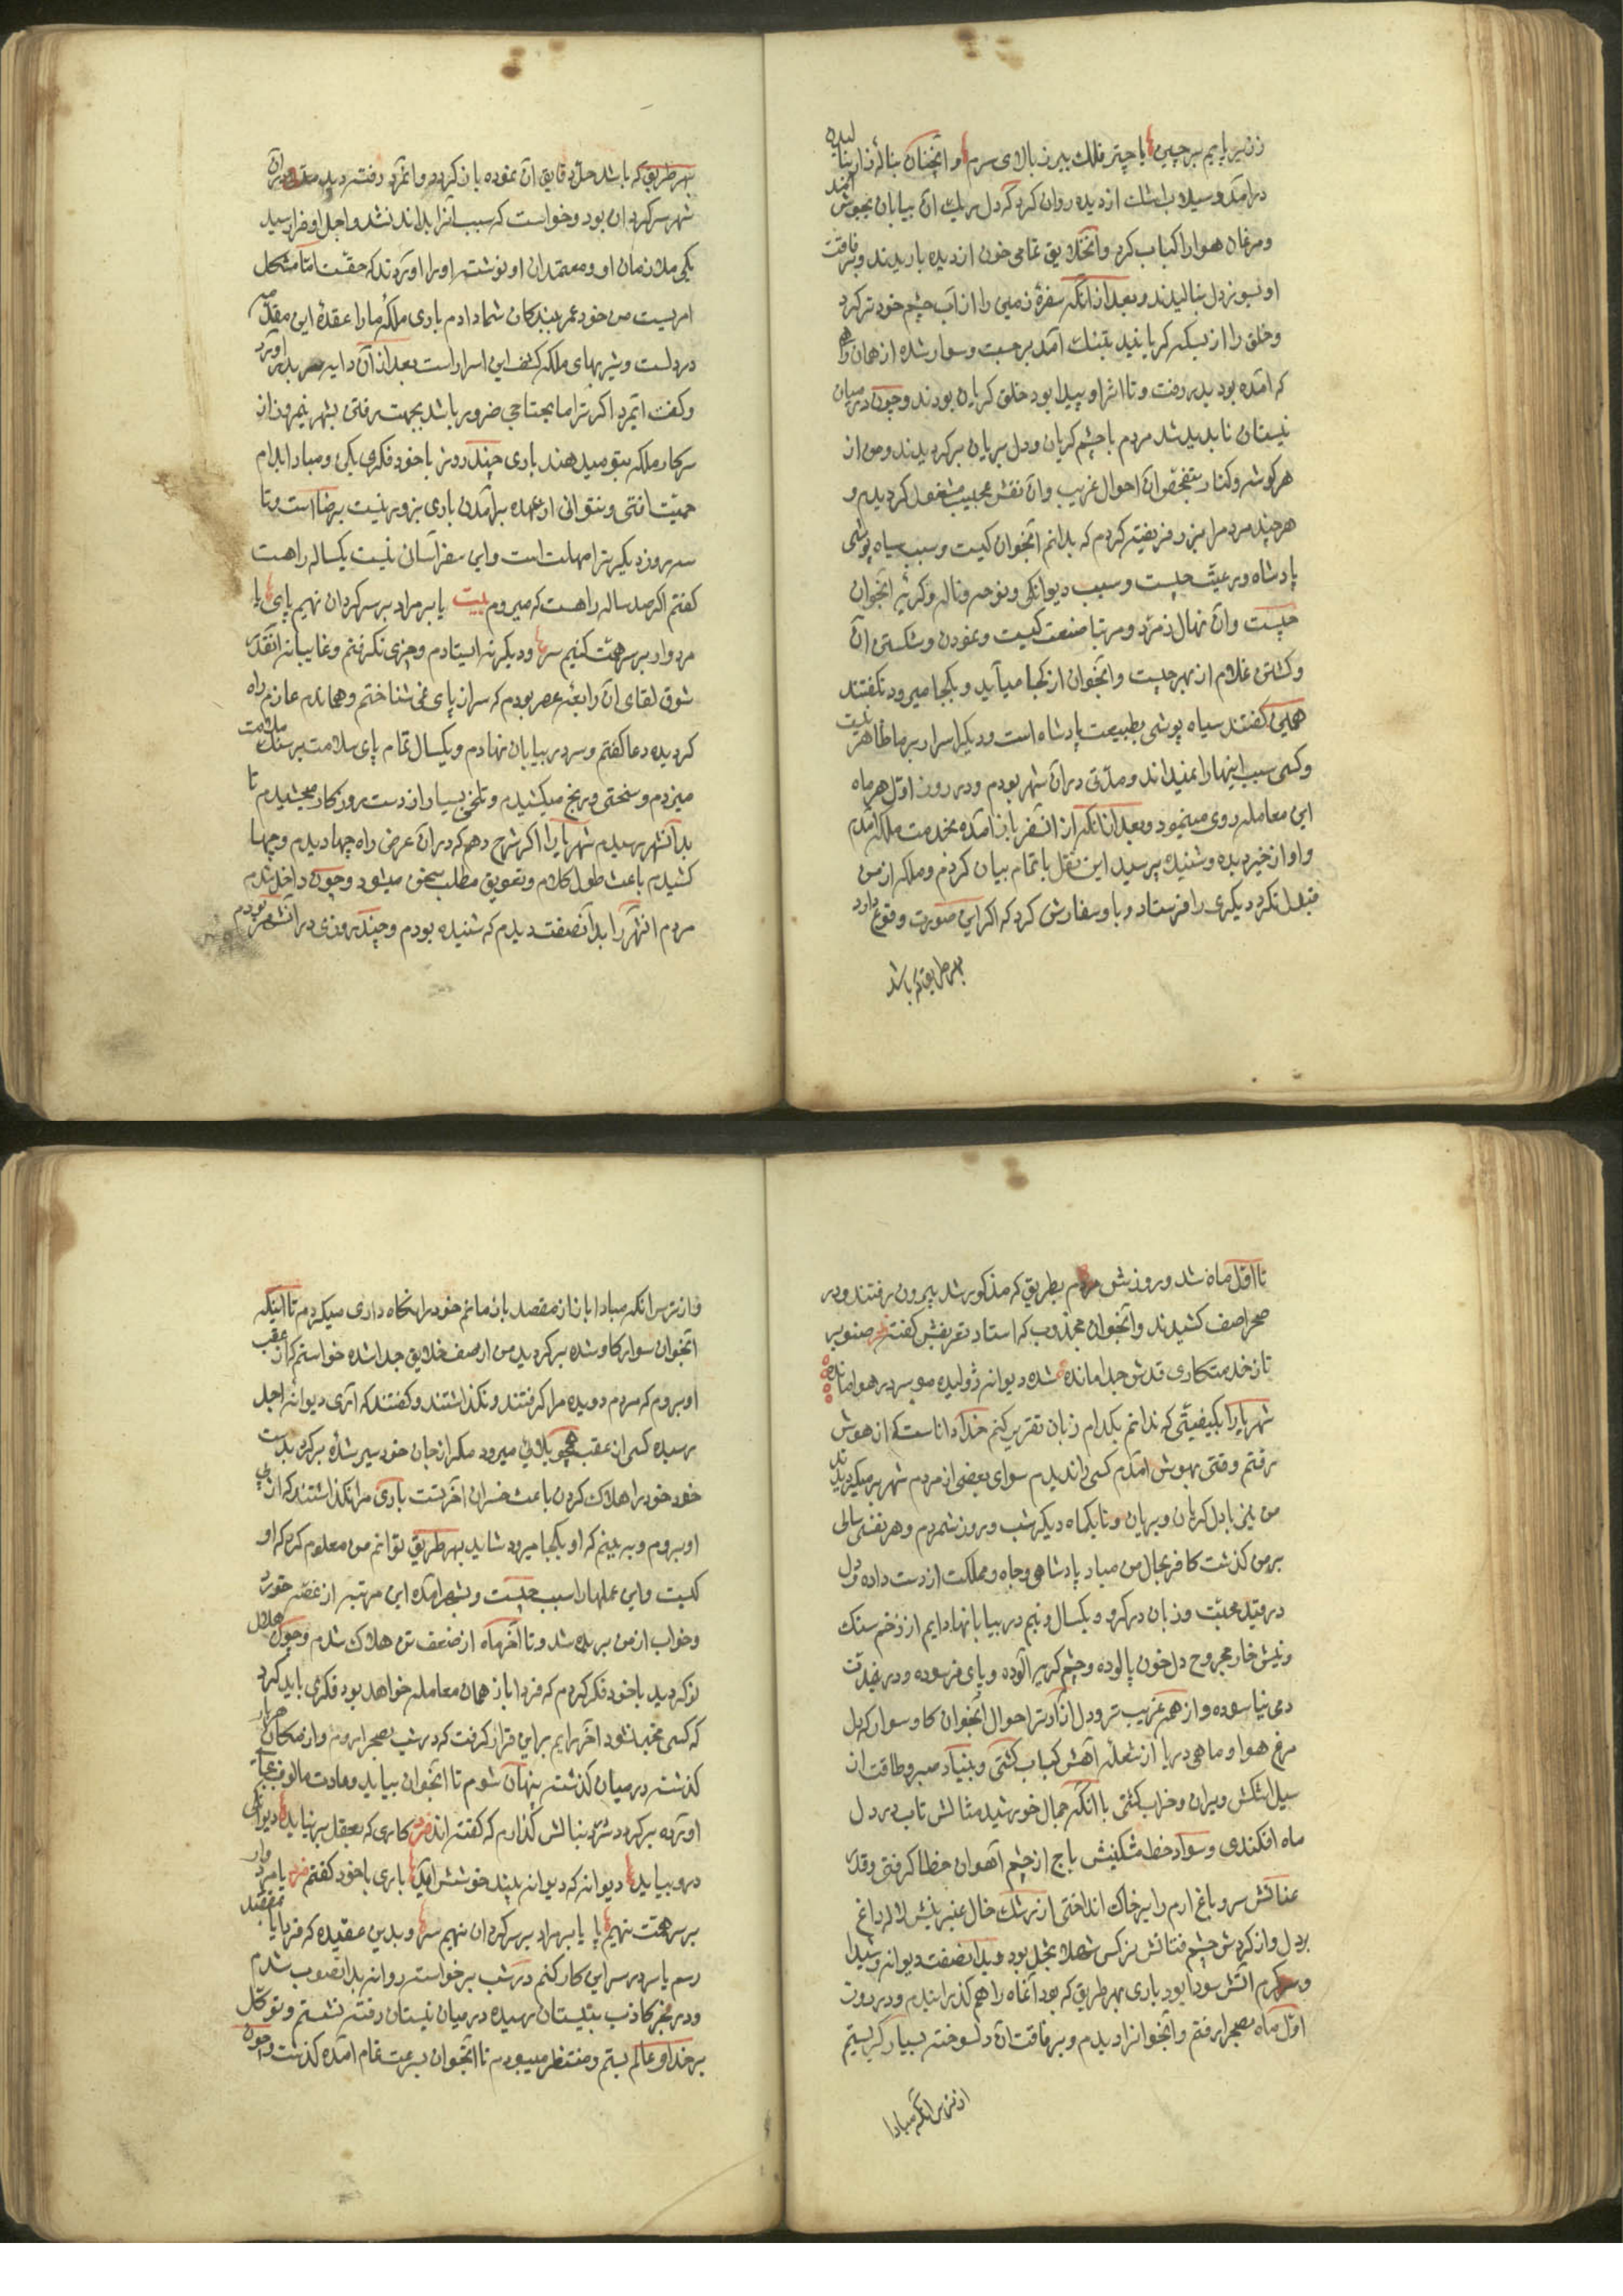 زن زیر پایم بر چین یا چتر فلک ببر ز بالای سرم و آنچنان بناله زار بنالیده
درآمد و سیلاب اشک از دیده روان کرد که دل ریک آن بیابان بجوش آمد
و مرغان هوا را کباب کرد و آنخلایق تمامی خون از دیده باریدند و برفاقت
او بسوز دل بنالیدند و بعد از آنکه سفرهٔ زمین را از آب چشم خود تر کرد
و خلق را از بسکه کریانید بتنک آمد برجست و سوار شده از همان راه
که آمده بود بدر رفت و تا اثر او پیدا بود خلق کریان بودند و چون در میان
نیستان ناپدید شد مردم با چشم کریان و دل بریان برکردیدند و من از
هر کوشه و کنار بتفحص آن احوال غریب و آن نقش عجیب مشغول کردیدم و
هر چند مردم را بزر فریفته کردم که بدانم آنجوان کیست و سبب سیاه پوشی
پادشاه و رعیت چیست و سبب دیوانکی و نوحه و ناله و کریهٔ آنجوان
چیست و آن نهال زمرد و مرتبا صنعت کیست و نمودن و شکستن آن
و کشتن غلام از بهر چیست و آنجوان از کجا میآید و بکجا میرود نکفتند
همین کفتند سیاه پوشی بطبیعت پادشاه است و دیکر اسرار بر ما ظاهر نیست
و کسی سبب اینها را نمیداند و مدتی در آن شهر بودم و در روز اول هر ماه
این معامله روی مینمود و بعد از آنکه از آنسفر باز آمده بخدمت ملکه آمدم
و او از خیر دیده و شنیده پرسید این نقل با تمام بیان کردم و ملکه از من
قبول نکرد دیکری را فرستاد و باو سفارش کرد که اکر این صورت وقوع دارد
بهر طریق که باشد
بهر طریق که باشد حل دقایق آن نموده باز کرد و آنمرد رفته دید مدتی در آن
شهر سرکردان بود و خواست که سبب آنرا بداند نشد و اجل او فرا رسید
یکی ملازمان او و معتمدان او نوشته او را آوردند که حقست اما مشکل
امریست من خود عمر ببندکان شما دادم باری ملکهٔ ما را عقدهٔ این مقدمه
در دلست و شیربهای ملکه کشف این اسرار است بعد از آن دایه مرا بدر آورد
و کفت ایمرد اکر ترا ما یحتاجی ضرور باشد بجهت رفتن بشهر نیمروز از
سرکار ملکه بتو میدهند باری چند روز با خود فکری بکن و مبادا بدام
حمیت افتی و نتوانی از عهده برآمدن باری بزور نیست برضا است و تا
سه روز دیکر ترا مهلت است و این سفر آسانی نیست یکساله راهست
کفتم اکر صد ساله راهست که میروم بیت یا بر مراد بر سر کردان نهیم پای یا
مردوار بر سر همت کنیم سر و دیکر نه ایستادم و چیزی نکرفتم و غایبانه آنقدر
شوق لقای آن رابعهٔ عصر بودم که سر از پای نمی شناختم و هماندم عازم راه
کردیده دعا کفتم و سر در بیابان نهادم و یکسال تمام پای سلامت بر سنک ملامت
میزدم و سختی و رنج میکشیدم و تلخی بسیار از دست روزکار میچشیدم تا
بدآنشهر رسیدم شهریارا اکر شرح دهم که در آن عرض راه چها دیدم و چها
کشیدم باعث طول کلام و تعویق مطلب سخن میشود و چون داخل شدم
مردم آنشهر را بدآنصفت دیدم که شنیده بودم و چند روزی در آنشهر بودم
تا اول ماه شد و روزش مردم بطریق که مذکور شد بیرون رفتند و در
صحرا صف کشیدند و آنجوان مجذوب که استاد تعریفش کفته صنوبر
تا ز خدمتکاری قدش جدا مانده شده دیوانه ژولیده مو سر در هوا مانده
شهریارا بکیفیتی که ندانم بکدام زبان تقریر کنم خدا داناست که از هوش
رفتم وقتی بهوش آمدم کسی را ندیدم سوای بعضی از مردم شهر بر میکردیدند
من نیز با دل کریان و بریان و تا یکماه دیکر شب و روز شمردم و هر نفس سالی
بر من کذشت کافر بحال من مباد پادشاهی و جاه و مملکت از دست داده و دل
در قید محبت و زبان در کرو و یکسال و نیم در بیابانها دایم از زخم سنک
و نیش خار مجروح دل خون پالوده و چشم کریه آلوده و پای فرسوده و در غربت
دمی نیاسوده و از همه غریب تر و دل آزارتر احوال آنجوان کاو سوار که دل
مرغ هوا و ماهی دریا از شعلهٔ آهش کباب کشتی و بنیاد صبر و طاقت از
سیل اشکش ویران و خراب کشتی با آنکه جمال خورشید مثالش تاب در دل
ماه افکندی و سواد خط مشکینش باج از چشم آهوان خطا کرفتی و قد
عنابش سرو باغ ارم را بر خاک انداختی از رشک خال عنبرینش لاله داغ
بر دل و از کردش چشم فتانش نرکس شهلا بخجل بود بدآنصفت دیوانه و شیدا
و سرکرم آتش سودا بود باری بهر طریق که بود آنماه را هم کذرانیدم و در روز
اول ماه بصحرا رفتم و آنجوانرا دیدم و برفاقت آن دلسوخته بسیار کریستم
از ترس آنکه مبادا
و از ترس آنکه مبادا باز از مقصد باز مانم خود را نکاه داری میکردم تا اینکه
آنجوان سوار کاو شده برکردید من از صف خلایق جدا شده خواستم که از عقب
او بروم که مردم دویده مرا کرفتند و نکذاشتند و کفتند که ای دیوانه اجل
رسیده کسی از عقب همچو بلائی میرود مکر از جان خود سیر شدهٔ برکرد بدست
خود خود را هلاک کردن باعث خسران آخرتست باری مرا نکذاشتند که از پی
او بروم و ببینم که او بکجا میرود شاید بهر طریق توانم من معلوم کرد که او
کیست و این عملها را سبب چیست و بشهر آمده این مرتبه از غصه خورد
و خواب از من بریده شد و تا آخر ماه از ضعف تن هلاک شدم و چون هلال
نو کردید با خود فکر کردم که فردا باز همان معامله خواهد بود فکری باید کرد
که کسی مخبر نشود آخر رایم براین قرار کرفت که در شب بصحرا روم و از مکان هر بار
کذشته در میان کذشته پنهان شوم تا آنجوان بیاید و عادت مالوف بجا
آورده برکردد سر در دنبالش کذارم که کفته اند فرد کاری که بعقل بر نیاید دیوانکی
درو بباید دیوانه که دیوانه ببیند خوشش آید باری با خود کفتم فرد یا مردوار
بر سر همت نهیم پا یا بر مراد بر سر کردان نهیم سر و بدین عقیده که فردا یا بمقصد
رسم یا سر در سر این کار کنم در شب برخواسته روانه بدآنصوب شدم
و در فجر کاذب بنیستان رسیده در میان نیستان رفته نشستم و توکل
بر خداو عالم بستم و منتظر میبودم تا آنجوان بسرعت تمام آمده کذشت و چون